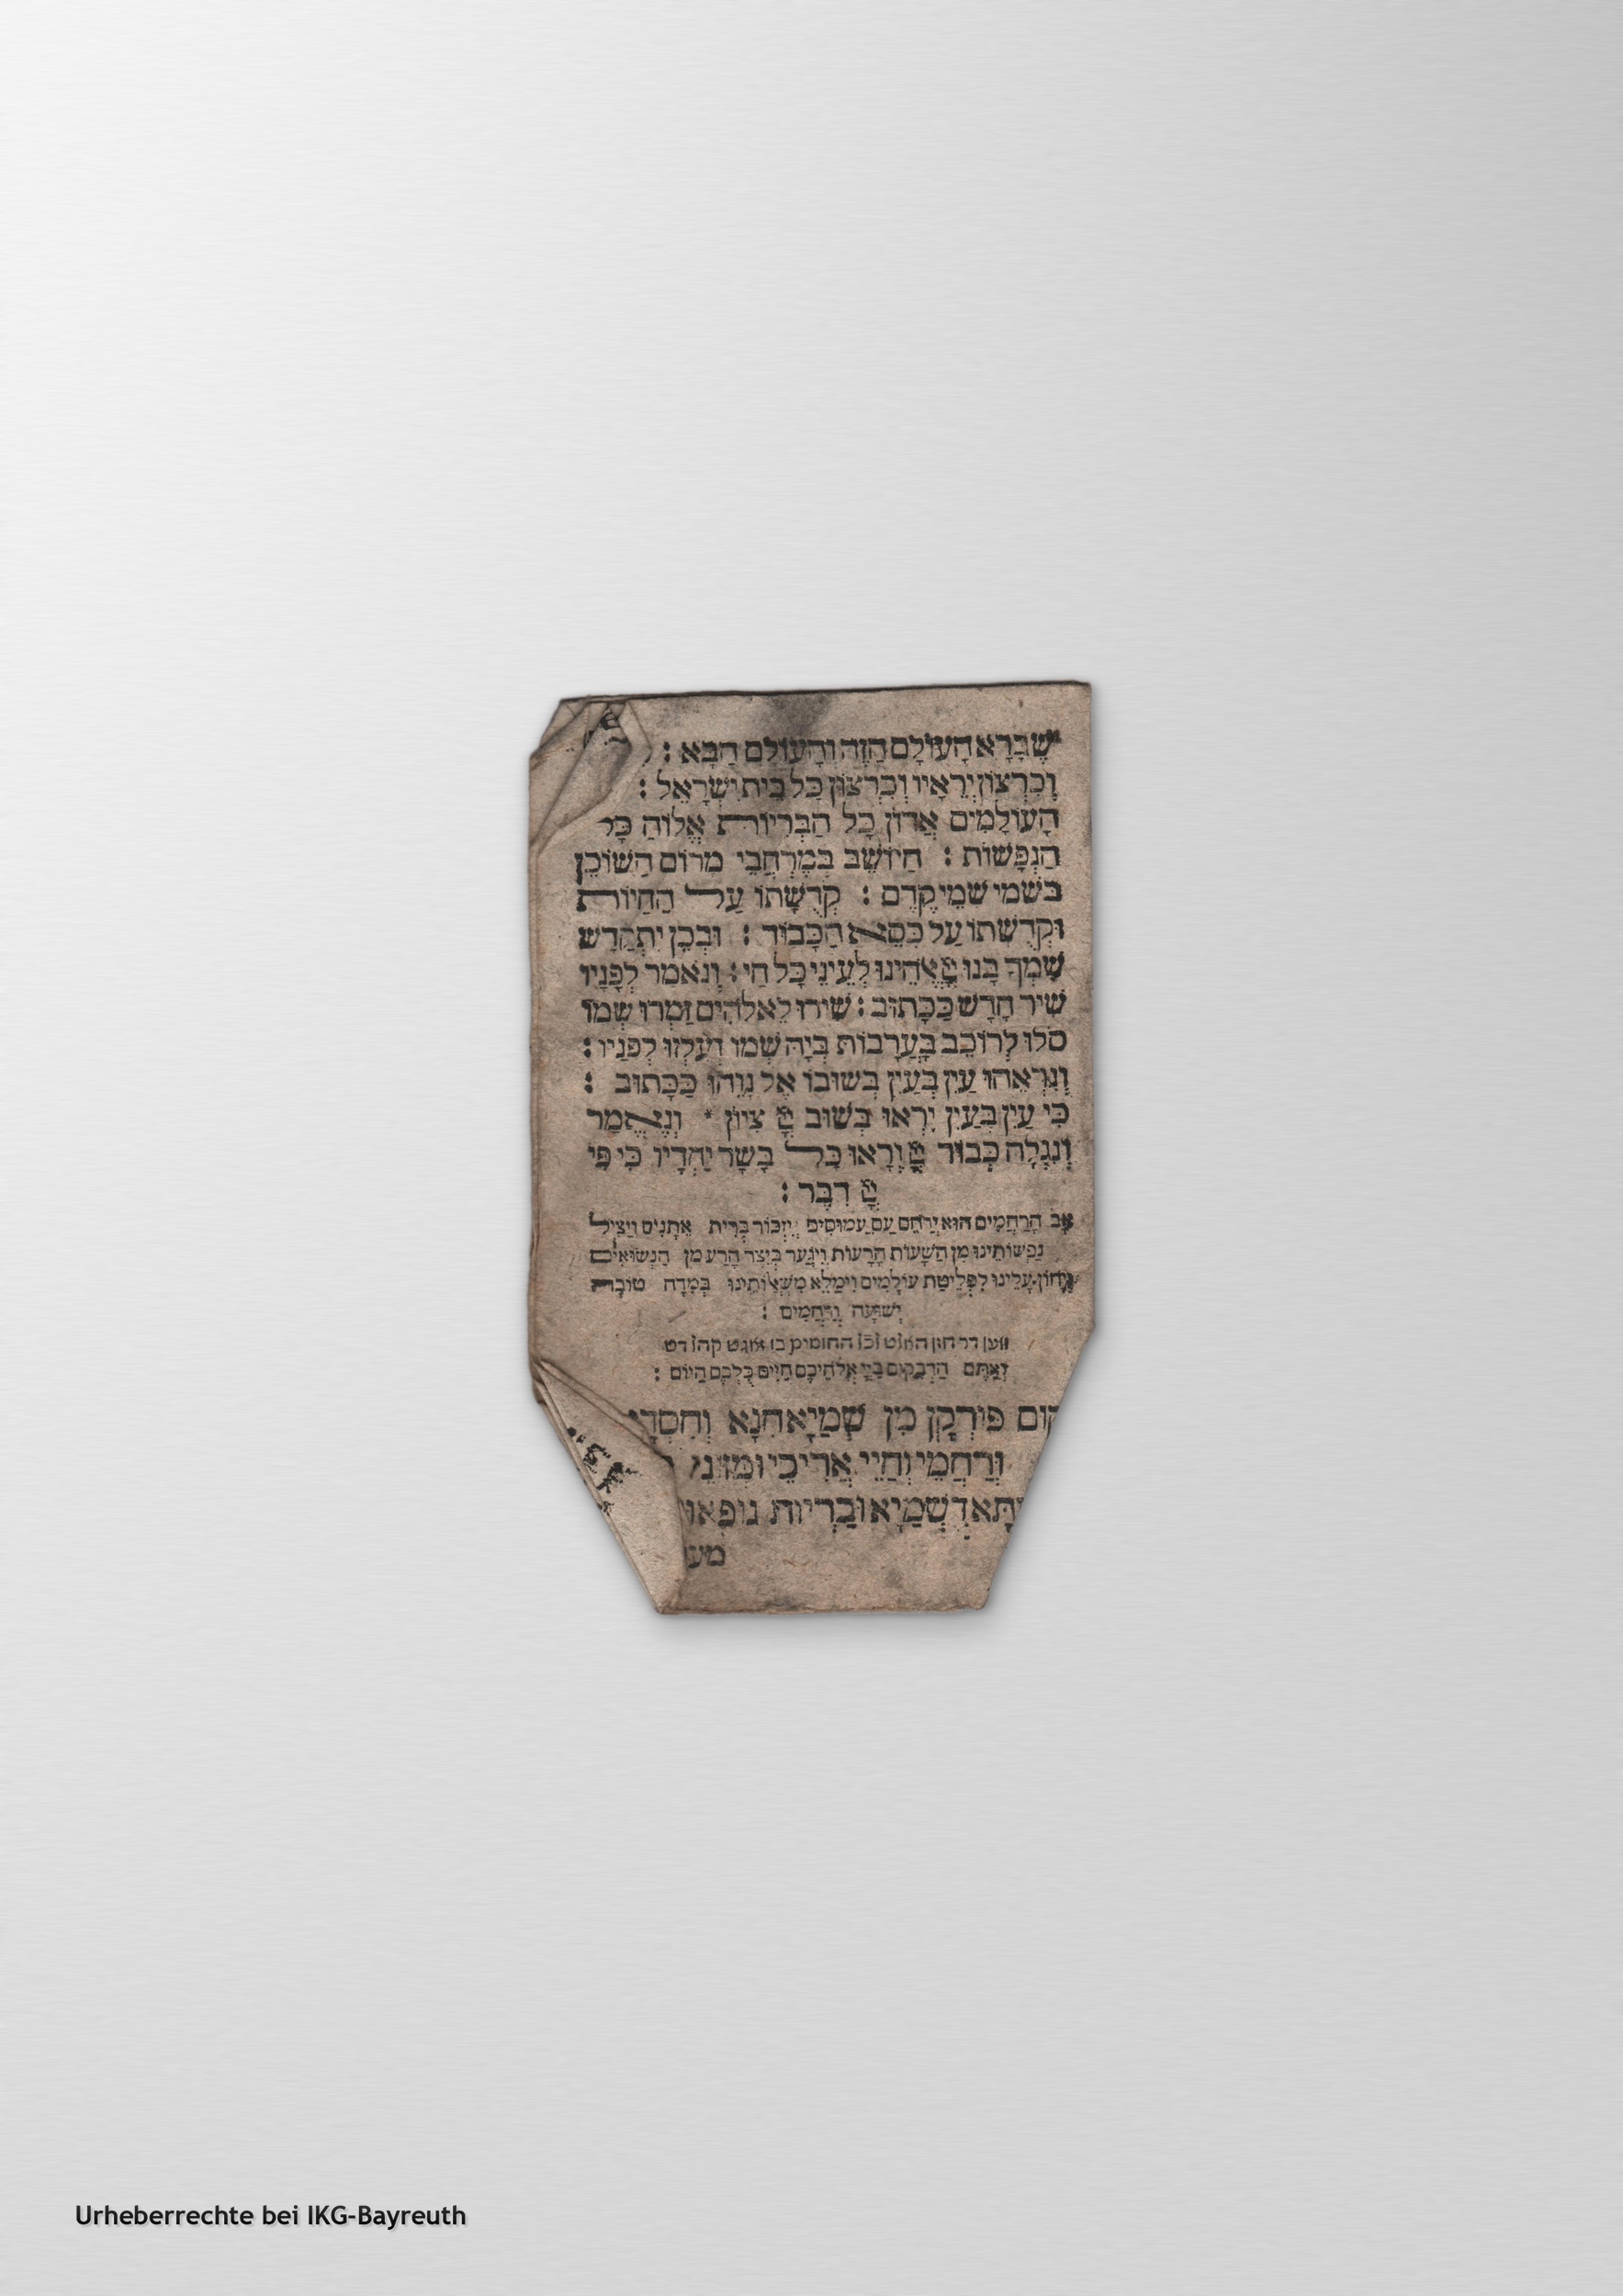 שֶׁבָּרָא הָעוֹלָם הַזֶּה וְהָעוֹלָם הַבָּא :
וְכִרְצוֹן יְרֵאָיו וְכִרְצוֹן כָּל בֵּית יִשְׂרָאֵל :
הָעוֹלָמִים אֲדוֹן כָּל הַבְּרִיוֹת אֱלוֹהַּ כָּל
הַנְפָשׁוֹת : הַיּוֹשֵׁב בְּמֶרְחֲבֵי מָרוֹם הַשּׁוֹכֵן
בִּשְׁמֵי שְׁמֵי קֶדֶם : קְדֻשָּׁתוֹ עַל הַחַיּוֹת
וּקְדֻשָּׁתוֹ עַל כִּסֵּא הַכָּבוֹד : וּבְכֵן יִתְקַדַּשׁ
שִׁמְךָ בָּנוּ יְיָ אֱלֹהֵינוּ לְעֵינֵי כָּל חַי : וְנֹאמַר לְפָנָיו
שִׁיר חָדָשׁ כַּכָּתוּב : שִׁירוּ לֵאלֹהִים זַמְּרוּ שְׁמוֹ
סֹלּוּ לָרוֹכֵב בָּעֲרָבוֹת בְּיָהּ שְׁמוֹ וְעִלְזוּ לְפָנָיו :
וְנִרְאֵהוּ עַיִן בְּעַיִן בְּשׁוּבוֹ אֶל נָוֵהוּ כַּכָּתוּב :
כִּי עַיִן בְּעַיִן יִרְאוּ בְּשׁוּב יְיָ צִיּוֹן * וְנֶאֱמַר
וְנִגְלָה כְּבוֹד יְיָ וְרָאוּ כָל בָּשָׂר יַחְדָּיו כִּי פִּי
יְיָ דִּבֵּר :
אַב הָרַחֲמִים הוּא יְרַחֵם עַם עֲמוּסִים וְיִזְכּוֹר בְּרִית אֵתָנִים וְיַצִּיל
נַפְשׁוֹתֵינוּ מִן הַשָּׁעוֹת הָרָעוֹת וְיִגְעַר בְּיֵצֶר הָרַע מִן הַנְּשׂוּאִים
וְיָחוֹן עָלֵינוּ לִפְלֵיטַת עוֹלָמִים וִימַלֵּא מִשְׁאֲלוֹתֵינוּ בְּמִדָּה טוֹבָה
יְשׁוּעָה וְרַחֲמִים :
ווען דר חזן האט
וְאַתֶּם הַדְּבֵקִים בַּיְיָ אֱלֹהֵיכֶם חַיִּים כֻּלְּכֶם הַיּוֹם :
קוּם פּוּרְקָן מִן שְׁמַיָּא חִנָּא וְחִסְדָּא
וְרַחֲמֵי וְחַיֵּי אֲרִיכֵי וּמְזוֹנֵי
יַּתָּא דִשְׁמַיָּא וּבַרְיוּת גּוּפָא וּ
מעו
Urheberrechte bei IKG-Bayreuth